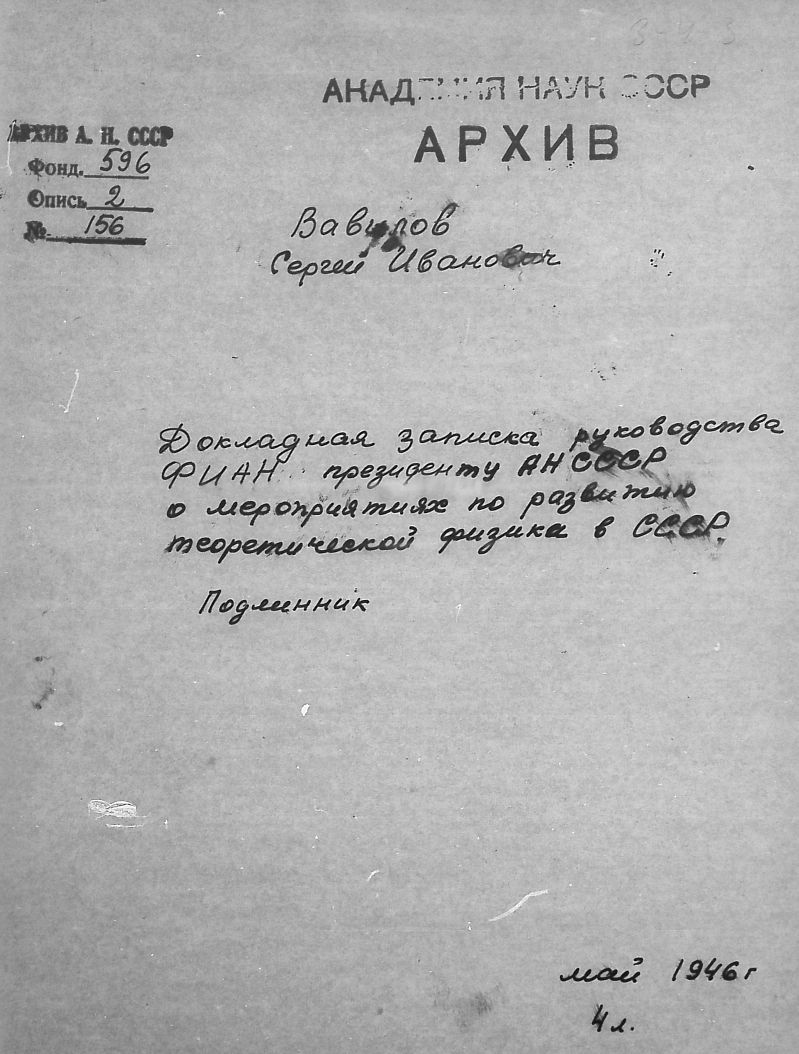 АКАДЕМИЯ НАУК СССР
АРХИВ
АРХИВ А. Н. СССР
Фонд. 596
Опись 2
№ 156
Вавилов
Сергей Иванович
Докладная записка руководства
ФИАН президенту АН СССР
о мероприятиях по развитию
теоретической физика в СССР.
Подлинник
май 1946 г
4 л.